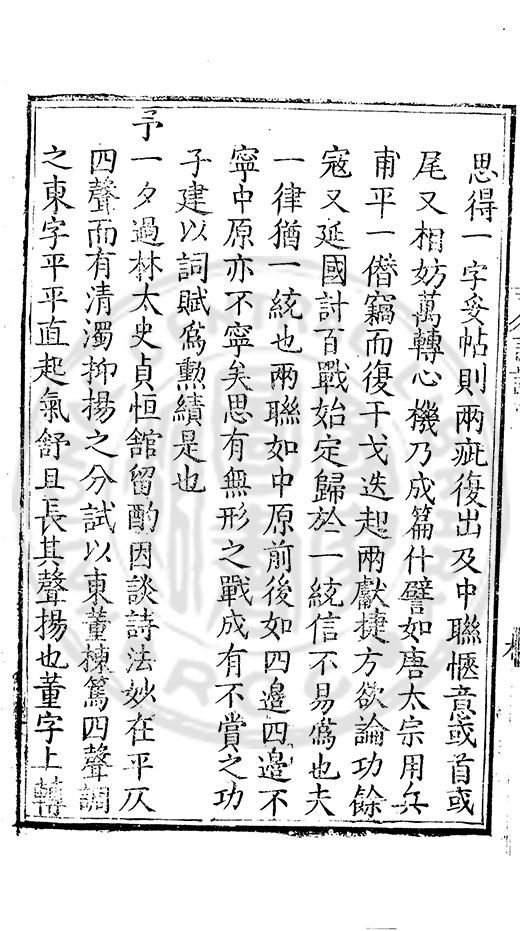 思得一字妥帖則兩疵復出及中聯愜意或首或
尾又相妨萬轉心機乃成篇什譬如唐太宗用兵
甫平一僭竊而復干戈迭起兩獻捷方欲論功餘
寇又延國計百戰始定歸於一統信不易為也夫
一律猶一統也兩聯如中原前後如四邊四邊不
寧中原亦不寧矣思有無形之戰成有不賞之功
子建以詞賦為勳績是也
予一夕過林太史貞恒舘留酌因談詩法妙在平仄
四聲而有清濁抑揚之分試以東董棟篤四聲調
之東字平平直起氣舒且長其聲揚也董字上轉